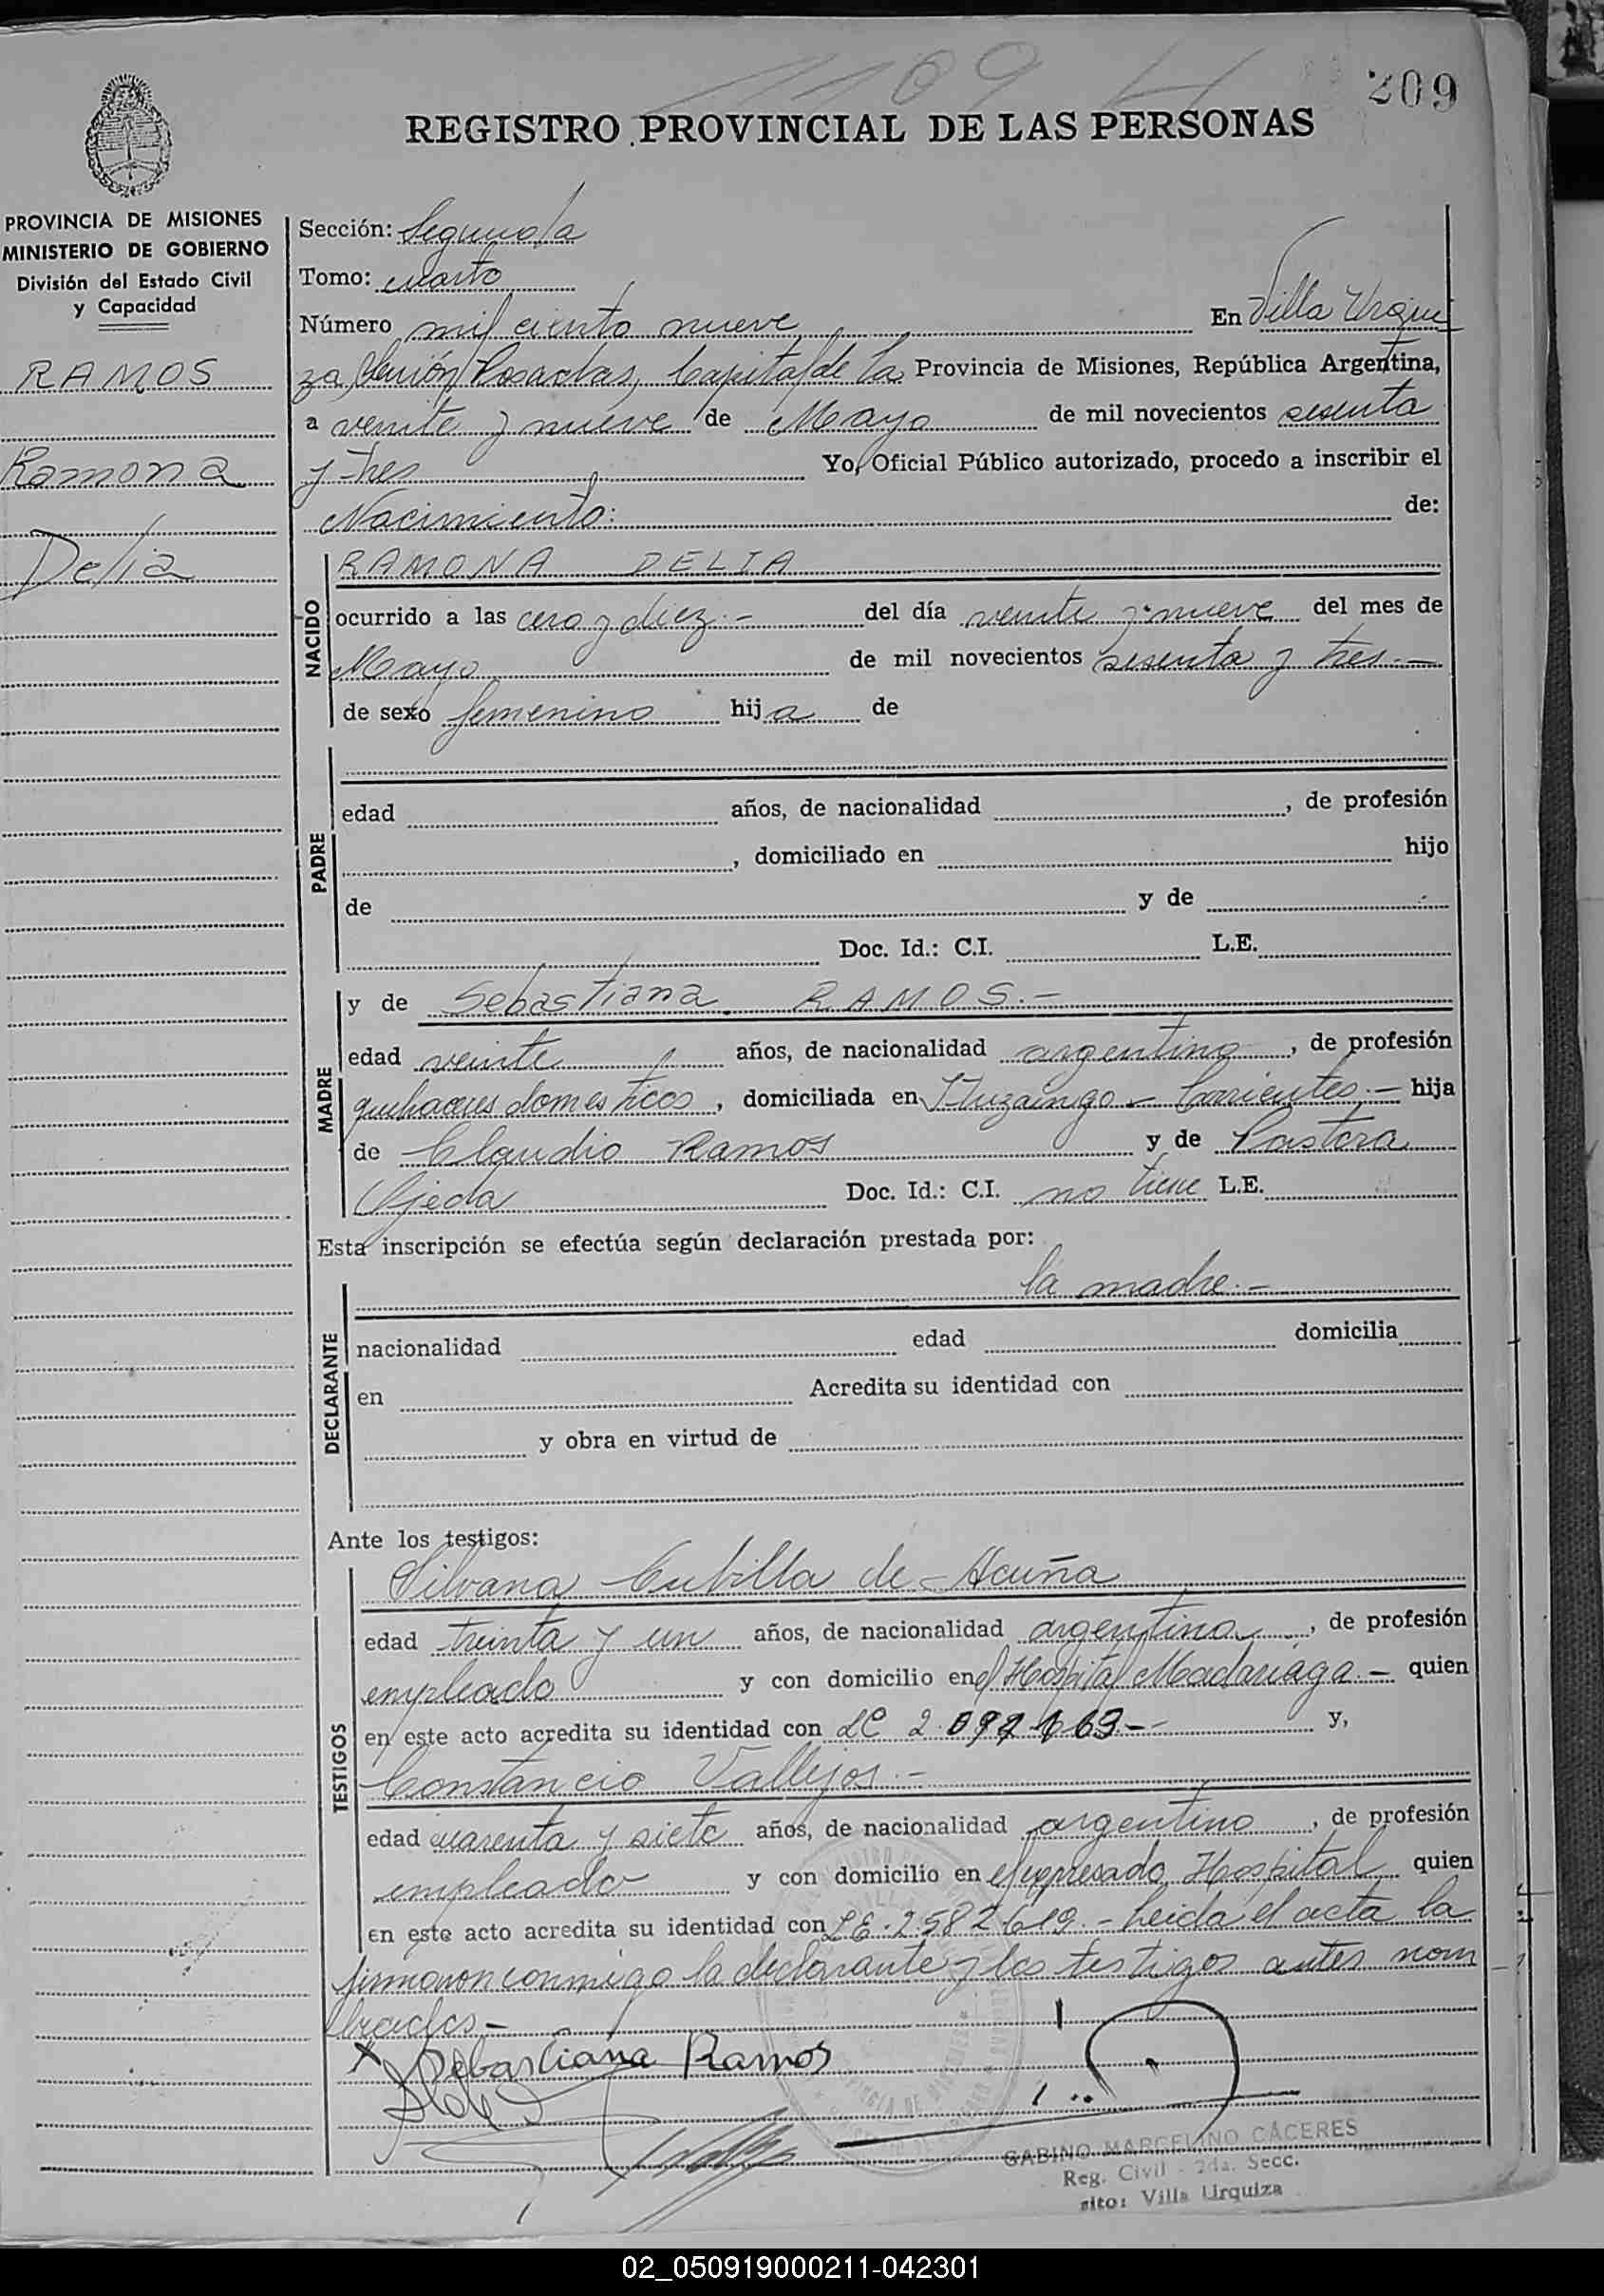 209
REGISTRO PROVINCIAL DE LAS PERSONAS
PROVINCIA DE MISIONES
MINISTERIO DE GOBIERNO
División del Estado Civil
y Capacidad
RAMOS
Ramona
Delia
Sección: Segunda
Tomo: cuarto
Número mil ciento nueve En Villa Urqui
za, Posadas, Capital de la Provincia de Misiones, República Argentina,
a veinte y nueve de Mayo de mil novecientos sesenta
y tres Yo, Oficial Público autorizado, procedo a inscribir el
Nacimiento: de:
NACIDO
RAMONA DELIA
ocurrido a las cero y diez.- del día veinte y nueve del mes de
Mayo de mil novecientos sesenta y tres.-
de sexo femenino hija de
PADRE
edad años, de nacionalidad , de profesión
, domiciliado en hijo
de y de
Doc. Id.: C.I. L.E.
MADRE
y de Sebastiana RAMOS.-
edad veinte años, de nacionalidad argentina, de profesión
quehaceres domesticos, domiciliada en Ituzaingo - Corrientes.- hija
de Claudio Ramos y de Pastora
Ojeda Doc. Id.: C.I. no tiene L.E.
Esta inscripción se efectúa según declaración prestada por:
la madre.-
DECLARANTE
nacionalidad edad domicilia
en Acredita su identidad con
y obra en virtud de
Ante los testigos:
TESTIGOS
Silvana Cubilla de Acuña
edad treinta y un años, de nacionalidad argentina, de profesión
empleado y con domicilio en el Hospital Madariaga.- quien
en este acto acredita su identidad con LC 2.092.163.- y,
Constancio Vallejos.-
edad cuarenta y siete años, de nacionalidad argentino, de profesión
empleado y con domicilio en el expresado Hospital quien
en este acto acredita su identidad con L E. 2.582.619.- Leida el acta la
firmaron conmigo la declarante y los testigos antes nom
brados.-
x Sebastiana Ramos
GABINO MARCELINO CÁCERES
Reg. Civil - 2da. Secc.
sito: Villa Urquiza
02_050919000211-042301